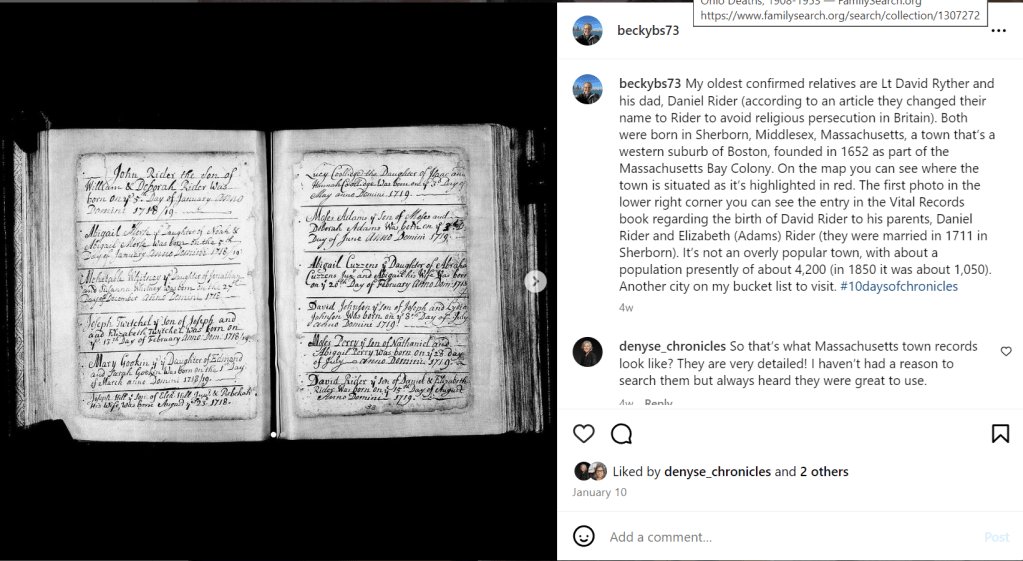 Ohio Deaths, 1908-1953 — FamilySearch.org
https://www.familysearch.org/search/collection/1307272
beckybs73
beckybs73 My oldest confirmed relatives are Lt David Ryther and
his dad, Daniel Rider (according to an article they changed their
name to Rider to avoid religious persecution in Britain). Both
were born in Sherborn, Middlesex, Massachusetts, a town that's a
western suburb of Boston, founded in 1652 as part of the
Massachusetts Bay Colony. On the map you can see where the
town is situated as it's highlighted in red. The first photo in the
lower right corner you can see the entry in the Vital Records
book regarding the birth of David Rider to his parents, Daniel
Rider and Elizabeth (Adams) Rider (they were married in 1711 in
Sherborn). It's not an overly popular town, with about a
population presently of about 4,200 (in 1850 it was about 1,050).
Another city on my bucket list to visit. #10daysofchronicles
4w
denyse_chronicles So that's what Massachusetts town records
look like? They are very detailed! I haven't had a reason to
search them but always heard they were great to use.
4w Reply
Liked by denyse_chronicles and 2 others
January 10
Add a comment...
Post
John Rider the Son of
William & Deborah Rider Was
born on yᵉ 5th Day of January Anno
Domini 1718/19.
Abigail Morse yᵉ Daughter of Noah &
Abigail Morse Was born on the 5th
Day of January Anno Domini 1718/19
Mehetabel Whitney yᵉ Daughter of Jonathan
and Susanna Whitney was born on the 27th
Day of December Anno Domini 1718
Joseph Twitchel yᵉ Son of Joseph and
and Elizabeth Twitchel Was born on
yᵉ 13th Day of February Anno Dom. 1718/19
Mary Gookin yᵉ Daughter of Edmond
and Sarah Gookin Was born on the 1st Day
of March Anno Domini 1718/19.
Joseph Hill yᵉ Son of & Rebekah
His Wife, Was born August yᵉ 23 1718.
Lucy Coollidge the Daughter of Isaac and
Hannah Coollidge Was born on yᵉ 3d Day of
May Anno Domini 1719.
Moses Adams yᵉ Son of Moses and
Deborah Adams Was born on yᵉ
Day of June Anno Domini 1719.
Abigail Cuzzens yᵉ Daughter of Abraham
Cuzzens and Abigail his Wife Was born
on yᵉ 26th Day of February Anno Dom: 1719
David Johnson yᵉ Son of Joseph and Lydia
Johnson Was born on yᵉ 8th Day of July
Anno Domini 1719.
Moses Perry yᵉ Son of Nathaniel and
Abigail Perry Was born on yᵉ 23 day
of July Anno Domini 1719.
David Rider yᵉ Son of Daniel & Elizabeth
Rider Was born on yᵉ 15th Day of August
Anno Domini 1719.